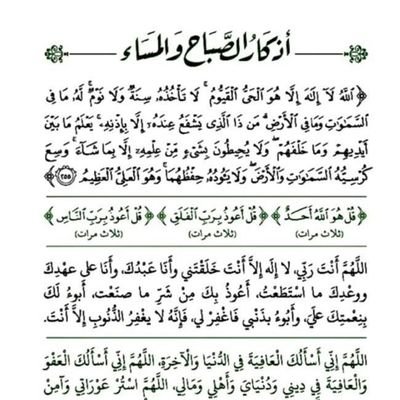 أذكار الصباح والمساء
﴿اللَّهُ لَا إِلَٰهَ إِلَّا هُوَ الْحَيُّ الْقَيُّومُ ۚ لَا تَأْخُذُهُ سِنَةٌ وَلَا نَوْمٌ ۚ لَهُ مَا فِي
السَّمَاوَاتِ وَمَا فِي الْأَرْضِ ۗ مَن ذَا الَّذِي يَشْفَعُ عِندَهُ إِلَّا بِإِذْنِهِ ۚ يَعْلَمُ مَا بَيْنَ
أَيْدِيهِمْ وَمَا خَلْفَهُمْ ۖ وَلَا يُحِيطُونَ بِشَيْءٍ مِّنْ عِلْمِهِ إِلَّا بِمَا شَاءَ ۚ وَسِعَ
كُرْسِيُّهُ السَّمَاوَاتِ وَالْأَرْضَ ۖ وَلَا يَئُودُهُ حِفْظُهُمَا ۚ وَهُوَ الْعَلِيُّ الْعَظِيمُ ۝٢٥٥﴾
﴿قُلْ هُوَ اللَّهُ أَحَدٌ﴾ ﴿قُلْ أَعُوذُ بِرَبِّ الْفَلَقِ﴾ ﴿قُلْ أَعُوذُ بِرَبِّ النَّاسِ﴾
(ثلاث مرات) (ثلاث مرات) (ثلاث مرات)
اللَّهُمَّ أَنْتَ رَبِّي، لا إِلَهَ إِلاَّ أَنْتَ خَلَقْتَنِي وأَنَا عَبْدُكَ، وأَنَا على عهْدِكَ
ووعْدِكَ ما اسْتَطَعْتُ، أَعُوذُ بِكَ مِنْ شَرِّ ما صنَعْت، أَبوءُ لَكَ
بِنِعْمتِكَ عليَّ، وأَبُوءُ بذَنْبي فَاغْفِر لي، فَإِنَّهُ لا يغْفِرُ الذُّنُوبَ إِلاَّ أَنْتَ.
اللَّهُمَّ إِنِّي أَسْأَلُكَ الْعَافِيَةَ فِي الدُّنْيَا وَالآخِرَةِ، اللَّهُمَّ إِنِّي أَسْأَلُكَ الْعَفْوَ
وَالْعَافِيَةَ فِي دِينِي وَدُنْيَايَ وَأَهْلِي وَمَالِي، اللَّهُمَّ اسْتُرْ عَوْرَاتِي وَآمِنْ